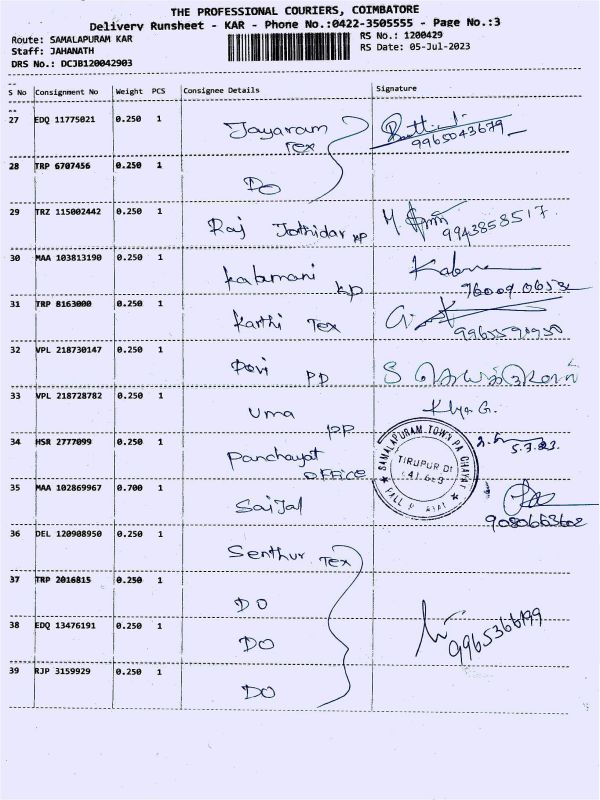 THE PROFESSIONAL COURIERS, COIMBATORE
Delivery Runsheet - KAR - Phone No.:0422-3505555 - Page No.:3
Route: SAMALAPURAM KAR
RS No.: 1200429
Staff: JAHANATH
RS Date: 05-Jul-2023
DRS No.: DCJB120042903
S No Consignment No Weight PCS Consignee Details Signature
27 EDQ 11775021 0.250 1 Jayaram Tex 9965043679
28 TRP 6707456 0.250 1 Do
29 TRZ 115002442 0.250 1 Raj Jothidar 9943858517
30 MAA 103813190 0.250 1 Kalamani
31 TRP 8163000 0.250 1 Karthi Tex
32 VPL 218730147 0.250 1
33 VPL 218728782 0.250 1 Uma PP
34 HSR 2777099 0.250 1 Panchayat OFFICE
SAMALAPURAM TOWN PANCHAYAT
TIRUPUR DT
35 MAA 102869967 0.700 1 9080663602
36 DEL 120908950 0.250 1 Senthur Tex
37 TRP 2016815 0.250 1 DO
38 EDQ 13476191 0.250 1 DO 9965366199
39 RJP 3159929 0.250 1 DO